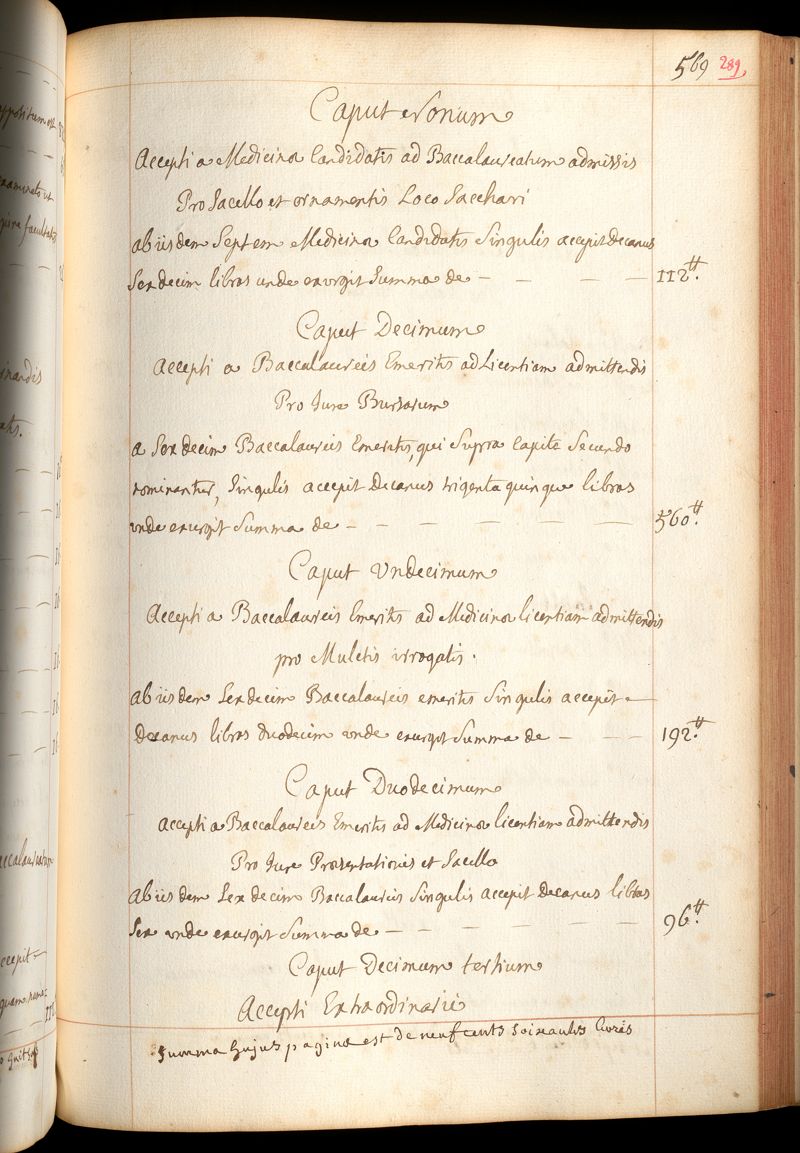 569 289
Caput Nonum
Accepti a Medicinæ Candidatis ad Baccalaureatum admissis
Pro Sacello et ornamentis Loco Sacchari
ab iisdem Septem Medicinæ Candidatis Singulis accepit Decanus
Sexdecim libras unde exurgit Summa de — — — — 112.
Caput Decimum
Accepti a Baccalaureis Emeritis ad Licentiam admittendis
Pro Jure Bursarum
a Sexdecim Baccalaureis Emeritis, qui Supra Capite Secundo
nominantur, Singulis accepit Decanus trigenta quinque libras
unde exurgit Summa de — — — — — — 560.
Caput Undecimum
Accepti a Baccalaureis Emeritis ad Medicinæ licentiam admittendis
pro Mulctis irrogatis.
ab iisdem Sexdecim Baccalaureis emeritis Singulis accepit
Decanus libras duodecim unde exurgit Summa de — — — 192.
Caput Duodecimum
accepti a Baccalaureis Emeritis ad Medicinæ licentiam admittendis
Pro Jure Præsentationis et Sacello
Ab iisdem Sexdecim Baccalaureis Singulis accepit Decanus libras
Sex unde exurgit Summa de — — — — — — 96.
Caput Decimum tertium
Accepti Extraordinarii
Summa hujus paginæ est de neuf cents soixante livres